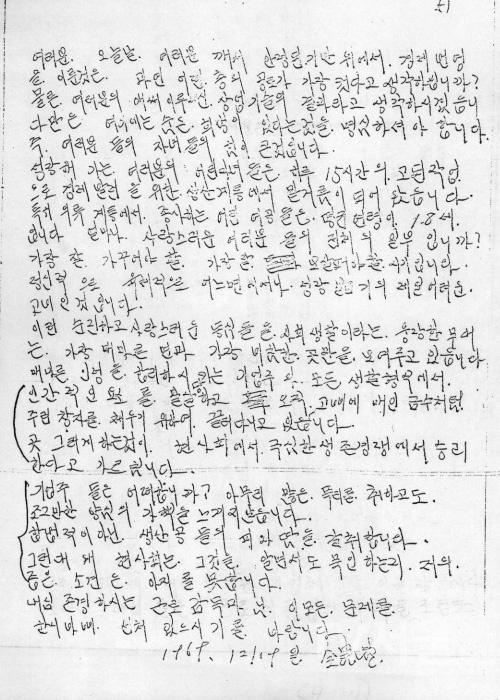 여러분. 오늘날. 여러분 께서 안정된 기반 위에서. 경제 번영
을 이룬것은. 과연 어떤. 층의 공로가 가장 컷다고 생각하십니까?
물론. 여러분의 애써 이루신 상업기술의 결과라고 생각하시겠읍니
다만은 여기에는 숨은. 희생이 있다는것을 명심하셔야 합니다.
즉. 여러분 들의 자녀들의 힘이 큰것입니다.
성장해 가는. 여러분의 어린자녀들은. 하루 15시간의. 고된 작업
으로 경제 발전을 위한. 생산계통에서 밑거름이 되어 왔읍니다.
특히 의류 계통에서. 종사하는 어린 여공들은. 평균 연령이. 18세.
입니다. 얼마나. 사랑스러운 여러분 들의 전체의 일부 입니까?
가장 잘. 가꾸어야 할. 가장 잘. 보살펴야 할. 시기입니다.
정신적 으로. 육체적으로 어느면에서나. 성장 기의 제일 어려운.
고비인것 입니다.
이런 순진하고 사랑스러운 동심들을 사회생활이라는. 웅장한 무대
는. 가장 메마른 면과 가장 비참한. 곳만을. 보여주고 있읍니다
메마른 인정을. 합리화시키는 기업주 와. 모든 생활형식에서.
인간적인 요소를 말살 하고 오직. 고삐에 매인 금수처럼
주린 창자를. 채우기 위하여. 끌려다니고 있읍니다.
곳 그렇게 하는것이. 현사회에서. 극심한 생존경쟁에서 승리
한다고 가르칩니다.
기업주 들은 어떠합니까? 아무리 많은. 폭리를. 취하고도.
조그만한 양심의 가책을 느끼지 않읍니다.
합법적이 아닌. 생산공 들의 피와 땀을. 갈취합니다.
그런대 왜 현사회는. 그것을. 알면서도 묵인하는지. 저의.
좁은 소견은. 알지를 못합니다.
내심 존경하시는 근로감독관님. 이 모든. 문제를.
한시바삐. 선처 있으시기를. 바랍니다.
1969. 12월 19일